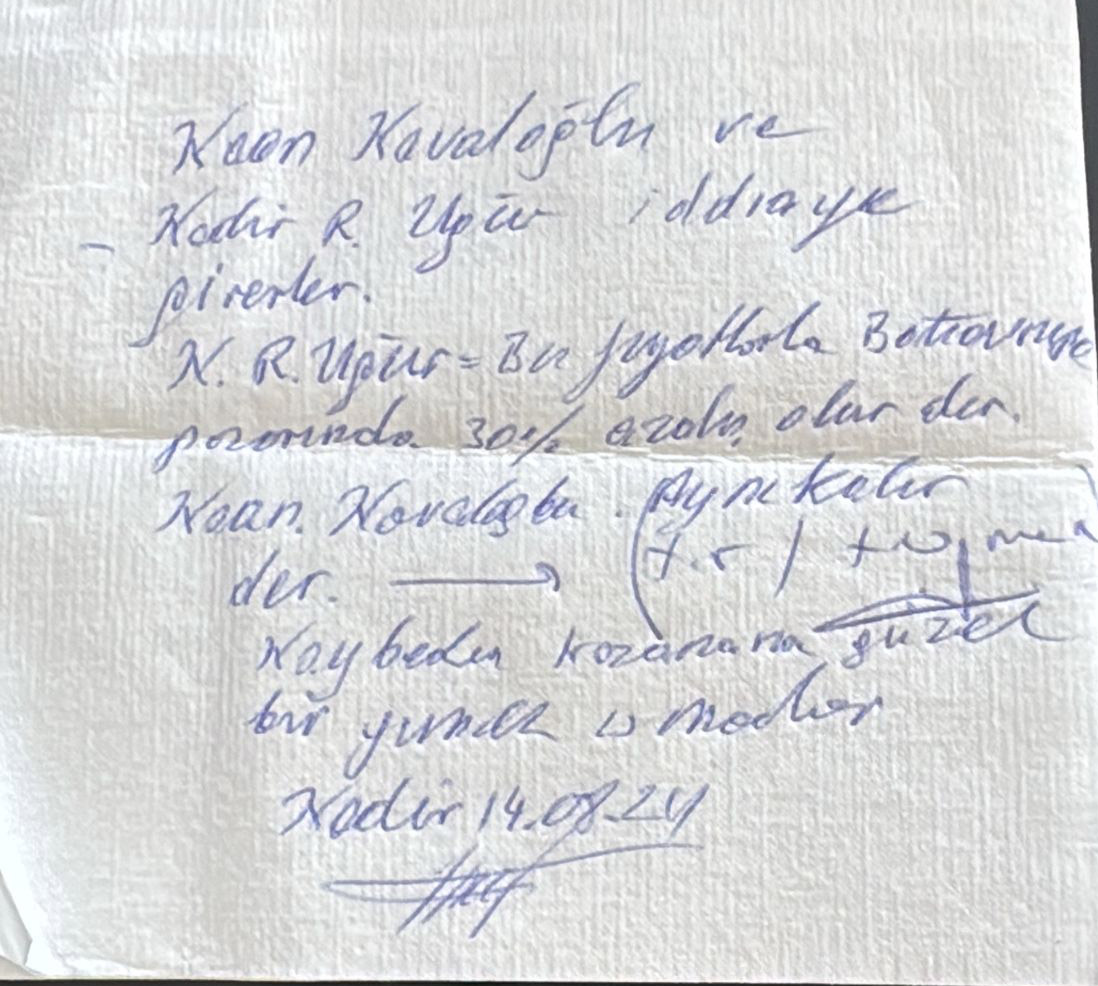 Kaan Kavaloğlu ve
Kadir R. Uğur iddiaya
girerler.
K. R. Uğur = Bu fiyatlarla Batıavrupa
pazarında 30% azalış olur der.
Kaan Kavaloğlu. Aynı kalır
der. →
Kaybeden kazanana güzel
bir yemek ısmarlar
Kadir 14.08.24